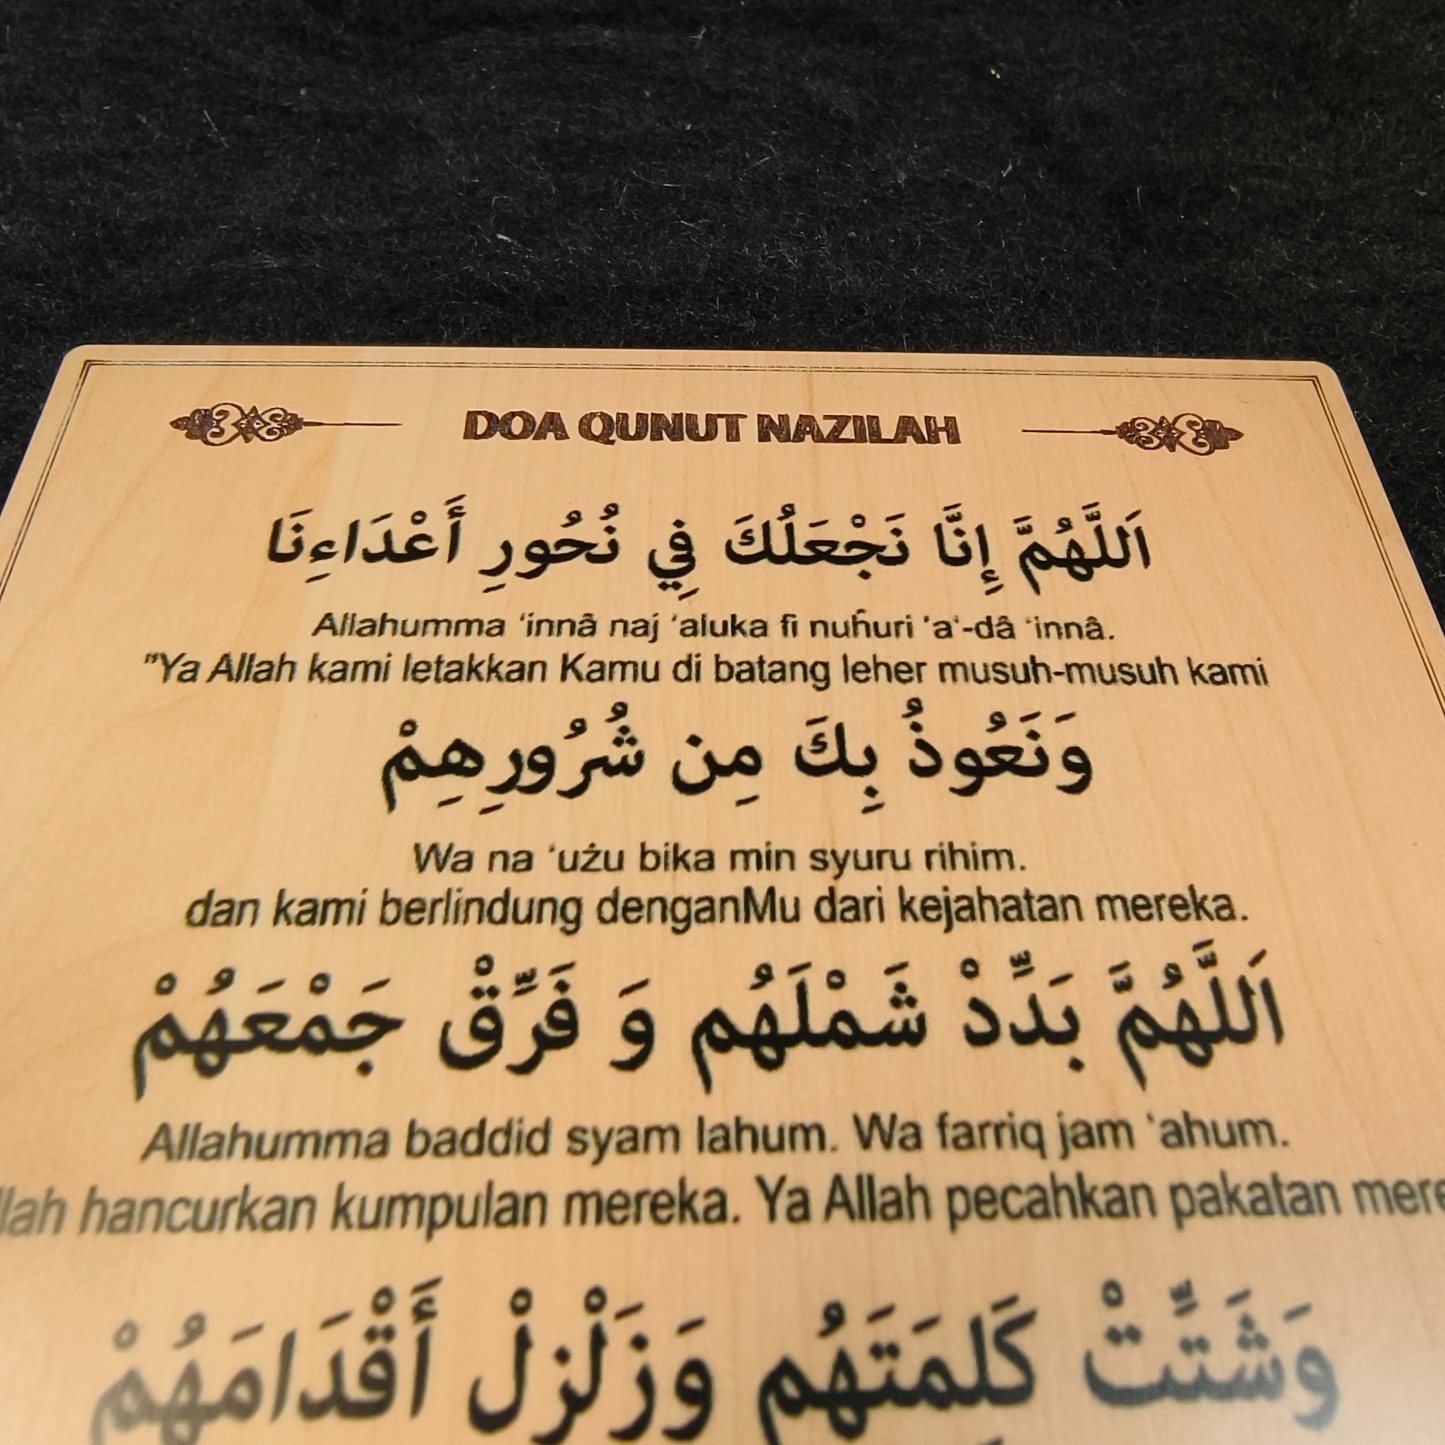 DOA QUNUT NAZILAH
اَللَّهُمَّ إِنَّا نَجْعَلُكَ فِي نُحُورِ أَعْدَاءِنَا
Allahumma 'innâ naj 'aluka fi nuĥuri 'a'-dâ 'innâ.
"Ya Allah kami letakkan Kamu di batang leher musuh-musuh kami
وَنَعُوذُ بِكَ مِن شُرُورِهِمْ
Wa na 'użu bika min syuru rihim.
dan kami berlindung denganMu dari kejahatan mereka.
اَللَّهُمَّ بَدِّدْ شَمْلَهُم وَ فَرِّقْ جَمْعَهُمْ
Allahumma baddid syam lahum. Wa farriq jam 'ahum.
llah hancurkan kumpulan mereka. Ya Allah pecahkan pakatan mere
وَشَتِّتْ كَلِمَتَهُم وَزَلْزِلْ أَقْدَامَهُمْ